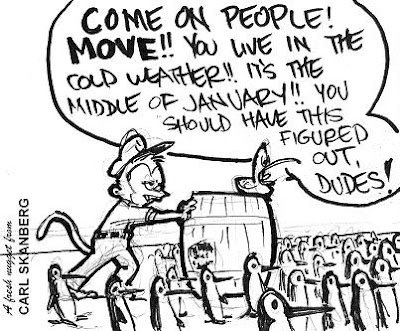 COME ON PEOPLE!
MOVE!! YOU LIVE IN THE
COLD WEATHER!! IT'S THE
MIDDLE OF JANUARY!! YOU
SHOULD HAVE THIS
FIGURED
OUT,
DUDES!
A fresh nugget from
CARL SKANBERG